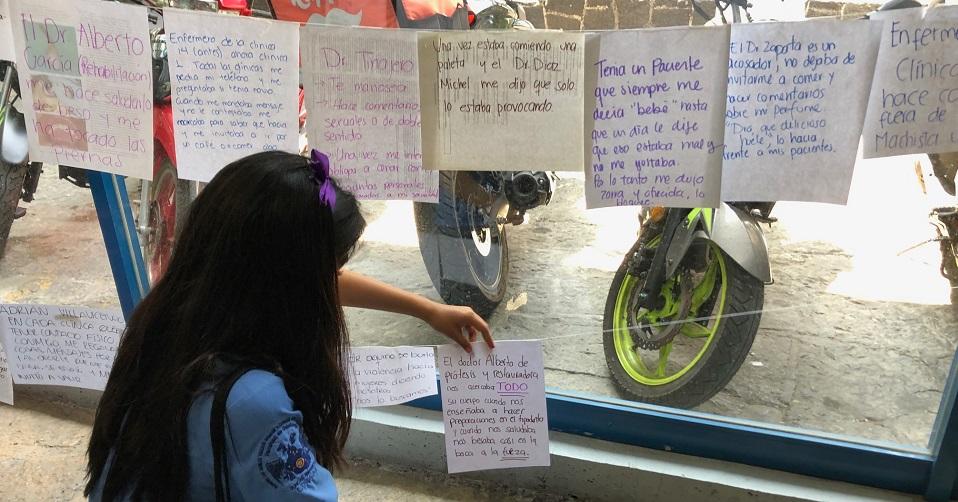 El Dr. Alberto
García
(Rehabilitación)
hace
saludarlo
de beso y me
ha
tocado las
Piernas
Enfermero de la clínica
14 (antes) ahora clínica
1. Todas las clínicas me
pedía mi teléfono y me
preguntaba si tenía novio.
Cuando me mandaba mensaje
y no le contestaba me
marcaba para saber que hacía
y me invitaba a ir por
un café o comer algo
Dr. Trinjero
→ Te manosea
→ Hace comentarios
sexuales o de doble
sentido
Una vez me
obligo a
preguntas personales
Una vez estaba comiendo una
paleta y el Dr. Díaz
Michel me dijo que solo
lo estaba provocando
Tenía un Paciente
que siempre me
decía "bebé" hasta
que un día le dije
que eso estaba mal y
no me gustaba.
Po lo tanto me dijo
zorra y ofrecida, lo
bloquee.
El Dr. Zapata es un
acosador, no dejaba de
invitarme a comer y
hacer comentarios
sobre mi perfume.
"Dra, que delicioso
huele", lo hacía,
frente a mis pacientes.
Enferme
Clínica
hace co
fuera de
Machista
ADRIAN VILLAVICENC
EN CADA CLINICA QUIERE
TENER CONTACTO FISICO
CONMIGO, ME
se burló
a violencia hacia
mujeres diciendo
nosotros
nos lo buscamos"
El doctor Alberto de
Prótesis y restauradora
nos acercaba TODO
su cuerpo cuando nos
enseñaba a hacer
preparaciones en el tipodonto
y cuando nos saludaba
nos besaba casi en la
boca a la fuerza.